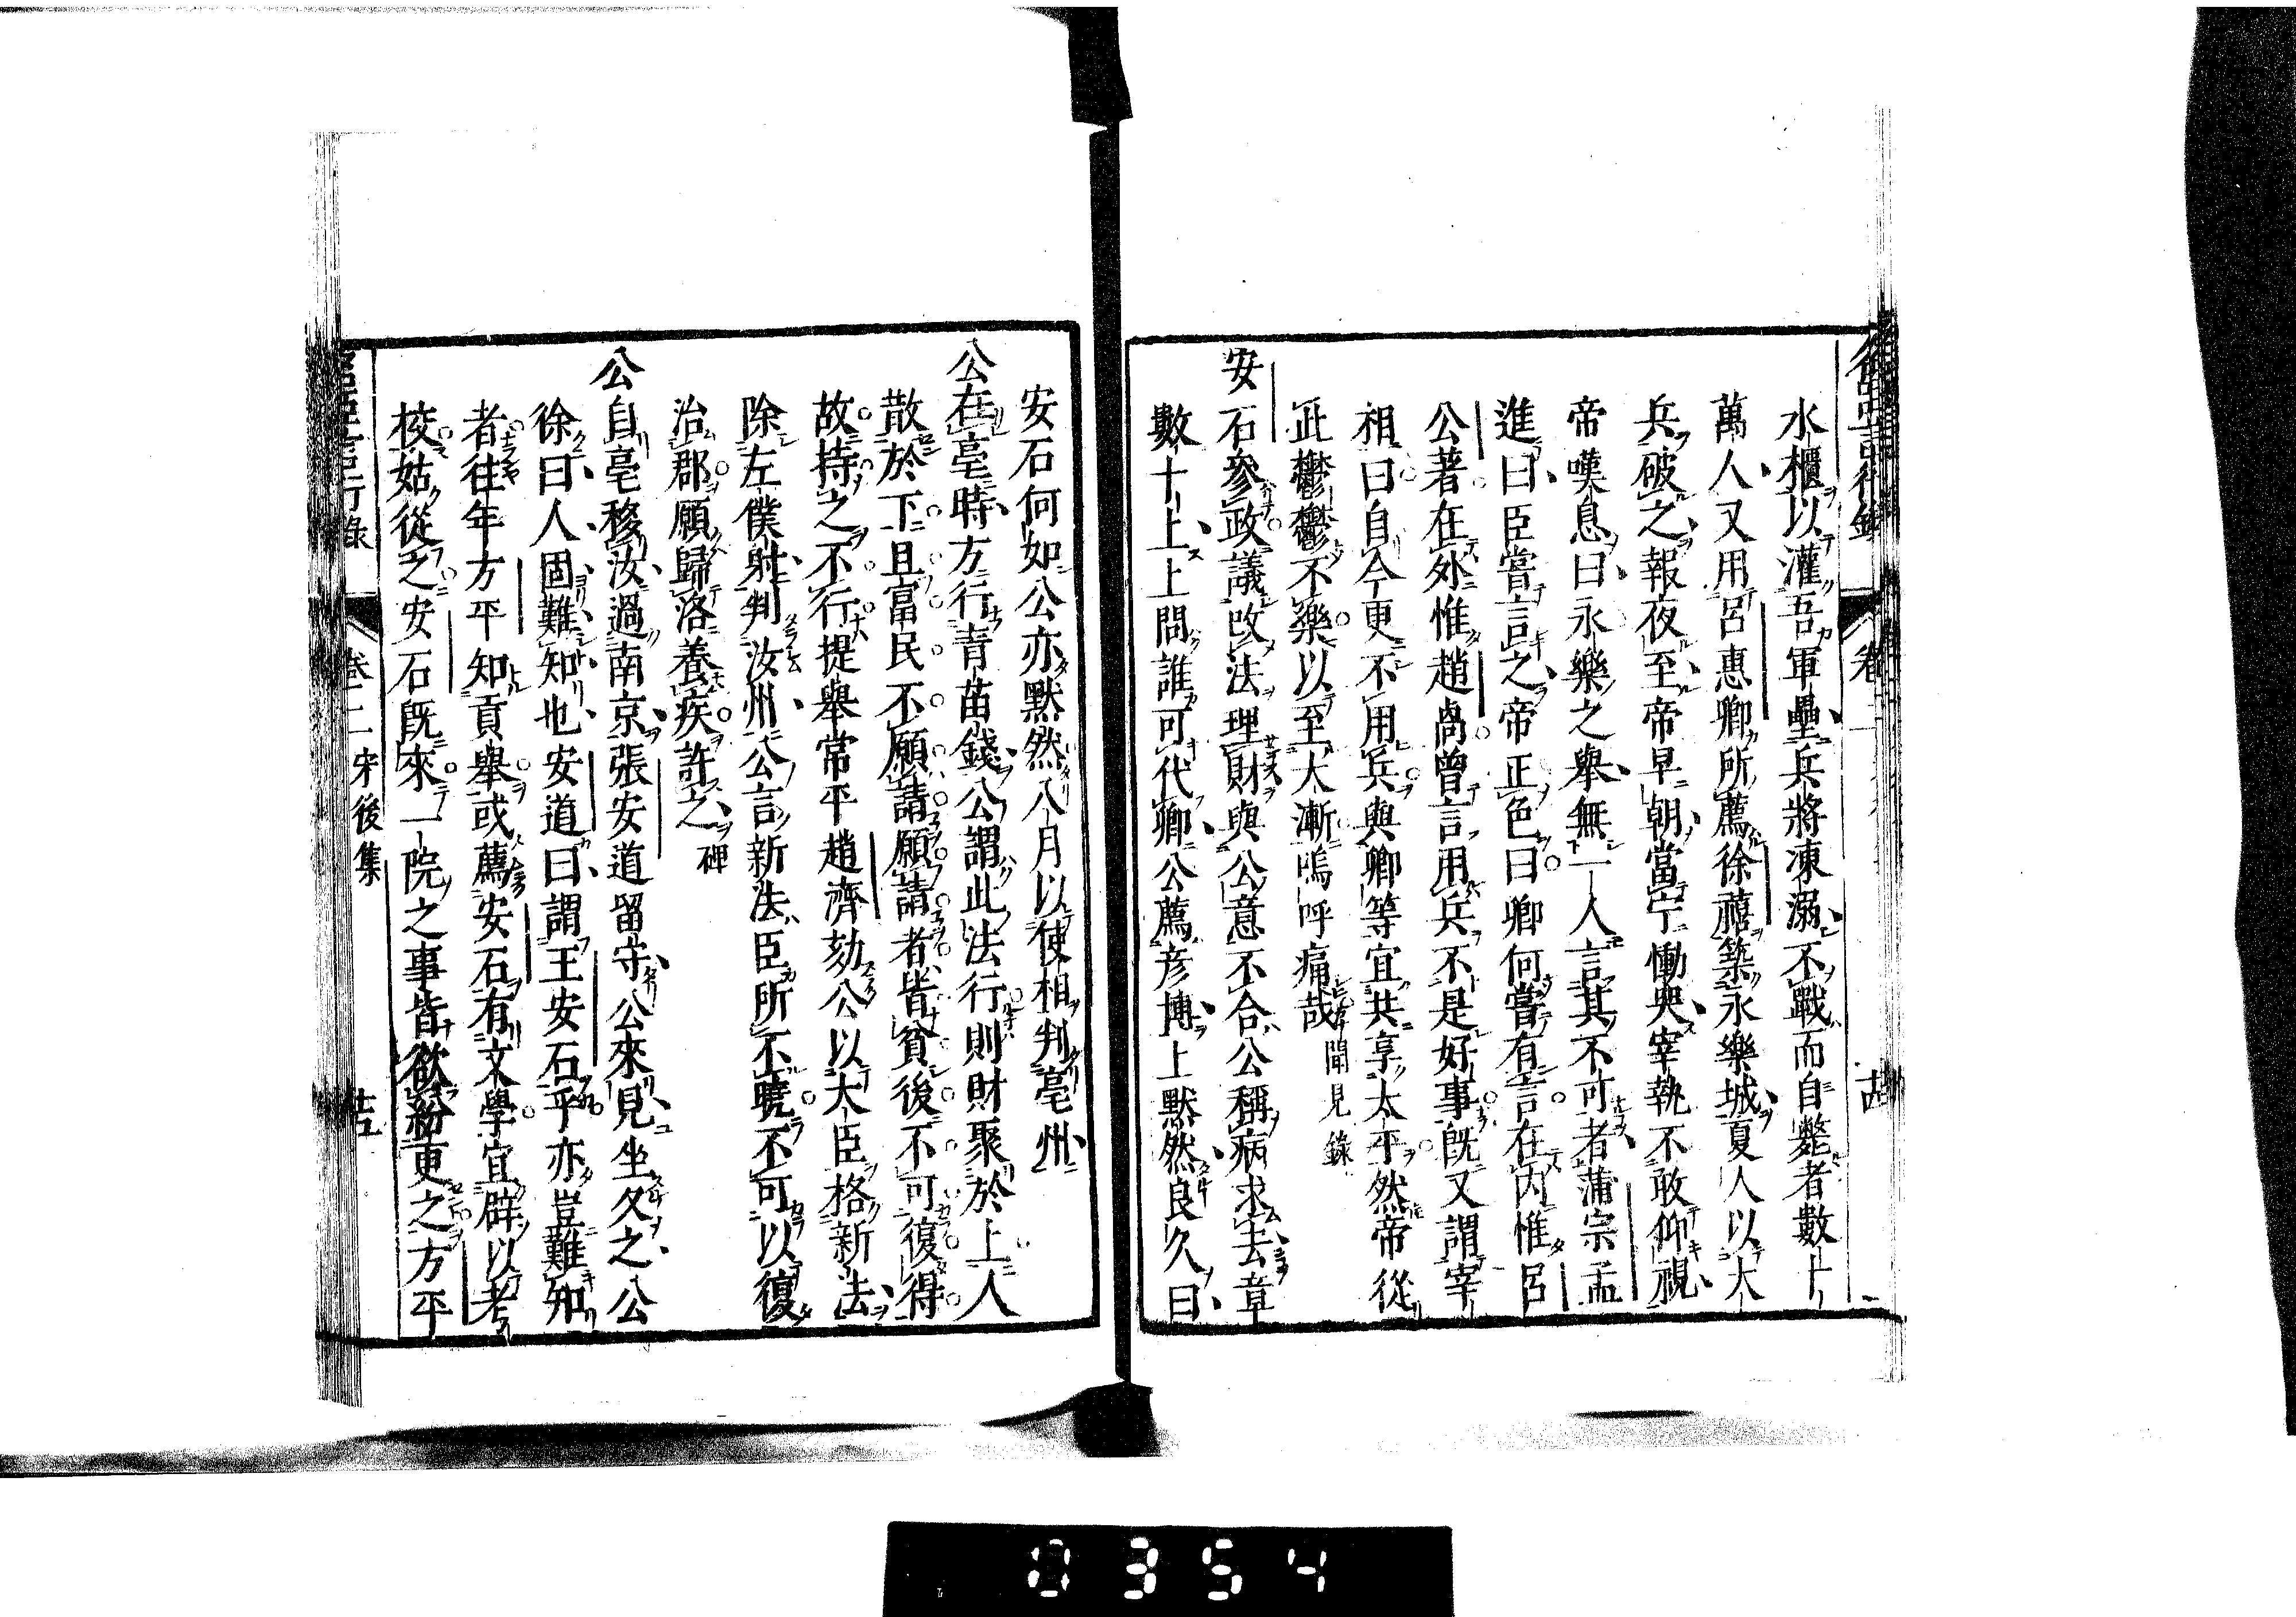 水櫃以灌吾軍壘兵將凍溺不戰而自斃者數十
萬人又用呂惠卿所薦徐禧築永樂城夏人以大
兵破之報夜至帝早朝當宁慟哭宰執不敢仰視
帝嘆息曰永樂之舉無一人言其不可者蒲宗孟
進曰臣嘗言之帝正色曰卿何嘗有言在內惟呂
公著在外惟趙卨曾言用兵不是好事既又謂宰
相曰自今更不用兵與卿等宜共享太平然帝從
此鬱鬱不樂以至大漸嗚呼痛哉聞見錄
安石參政議改法理財與公意不合公稱病求去章
數十上上問誰可代卿公薦彥博上默然良久曰
安石何如公亦默然八月以使相判亳州
公在亳時方行青苗錢公謂此法行則財聚於上人
散於下且富民不願請願請者皆貧後不可復得
故持之不行提舉常平趙濟劾公以大臣格新法
除左僕射判汝州公言新法臣所不曉不可以復
治郡願歸洛養疾許之碑
公自亳移汝過南京張安道留守公來見坐久之公
徐曰人固難知也安道曰謂王安石乎亦豈難知
者往年方平知貢舉或薦安石有文學宜辟以考
校姑從之安石既來一院之事皆欲紛更之方平
卷二 宋後集